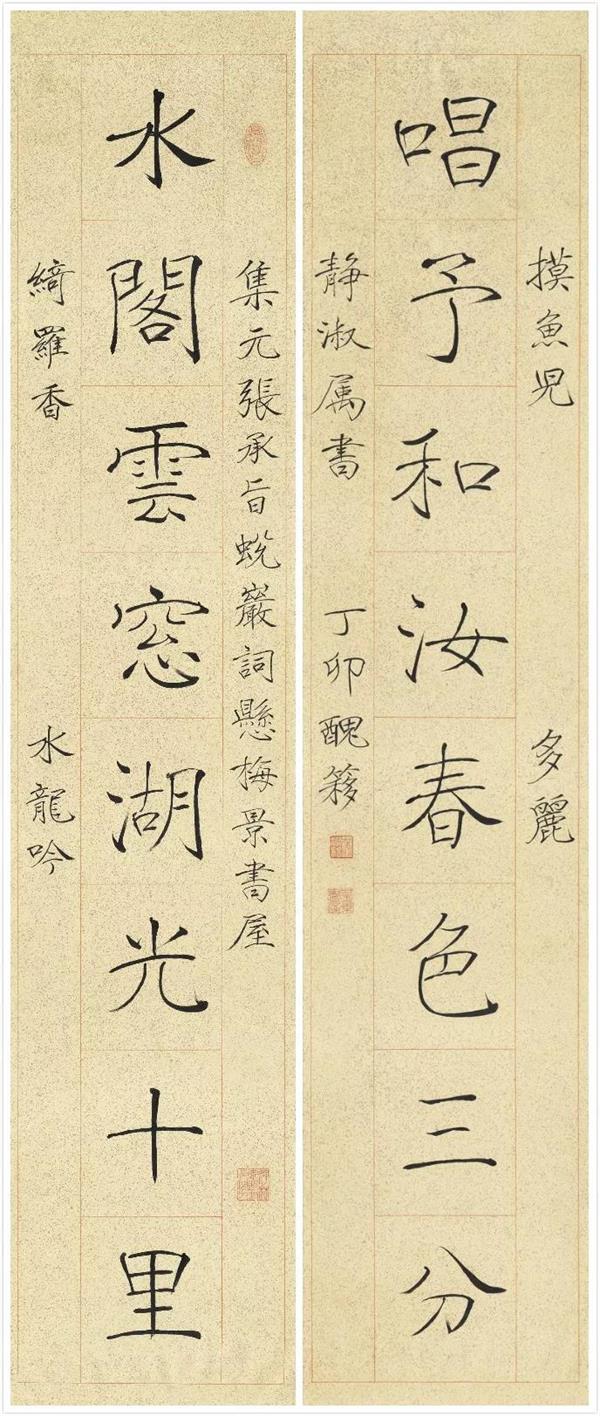 集元張承旨蜕巖詞懸梅景書屋
水閣雲窓湖光十里
綺羅香 水龍吟
摸魚児 多麗
唱予和汝春色三分
静淑属書 丁卯醜簃